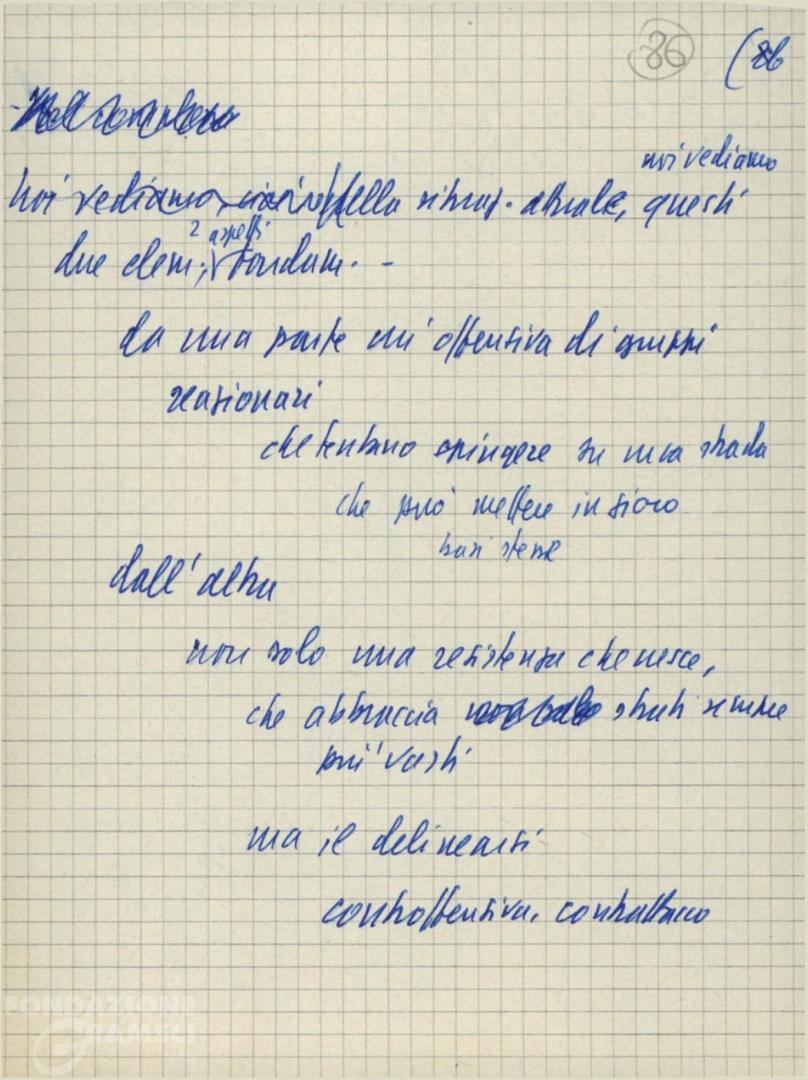 86 (86
noi vediamo
Noi vediamo, nella situaz. attuale, questi
2 aspetti
due elem; fondam. -
da una parte un'offensiva di gruppi
reazionari
che tentano spingere su una strada
che può mettere in gioco
basi stesse
dall'altra
non solo una resistenza che cresce,
che abbraccia strati sempre
più vasti
ma il delinearsi
controffensiva, contrattacco
FONDAZIONE
GRAMSCI